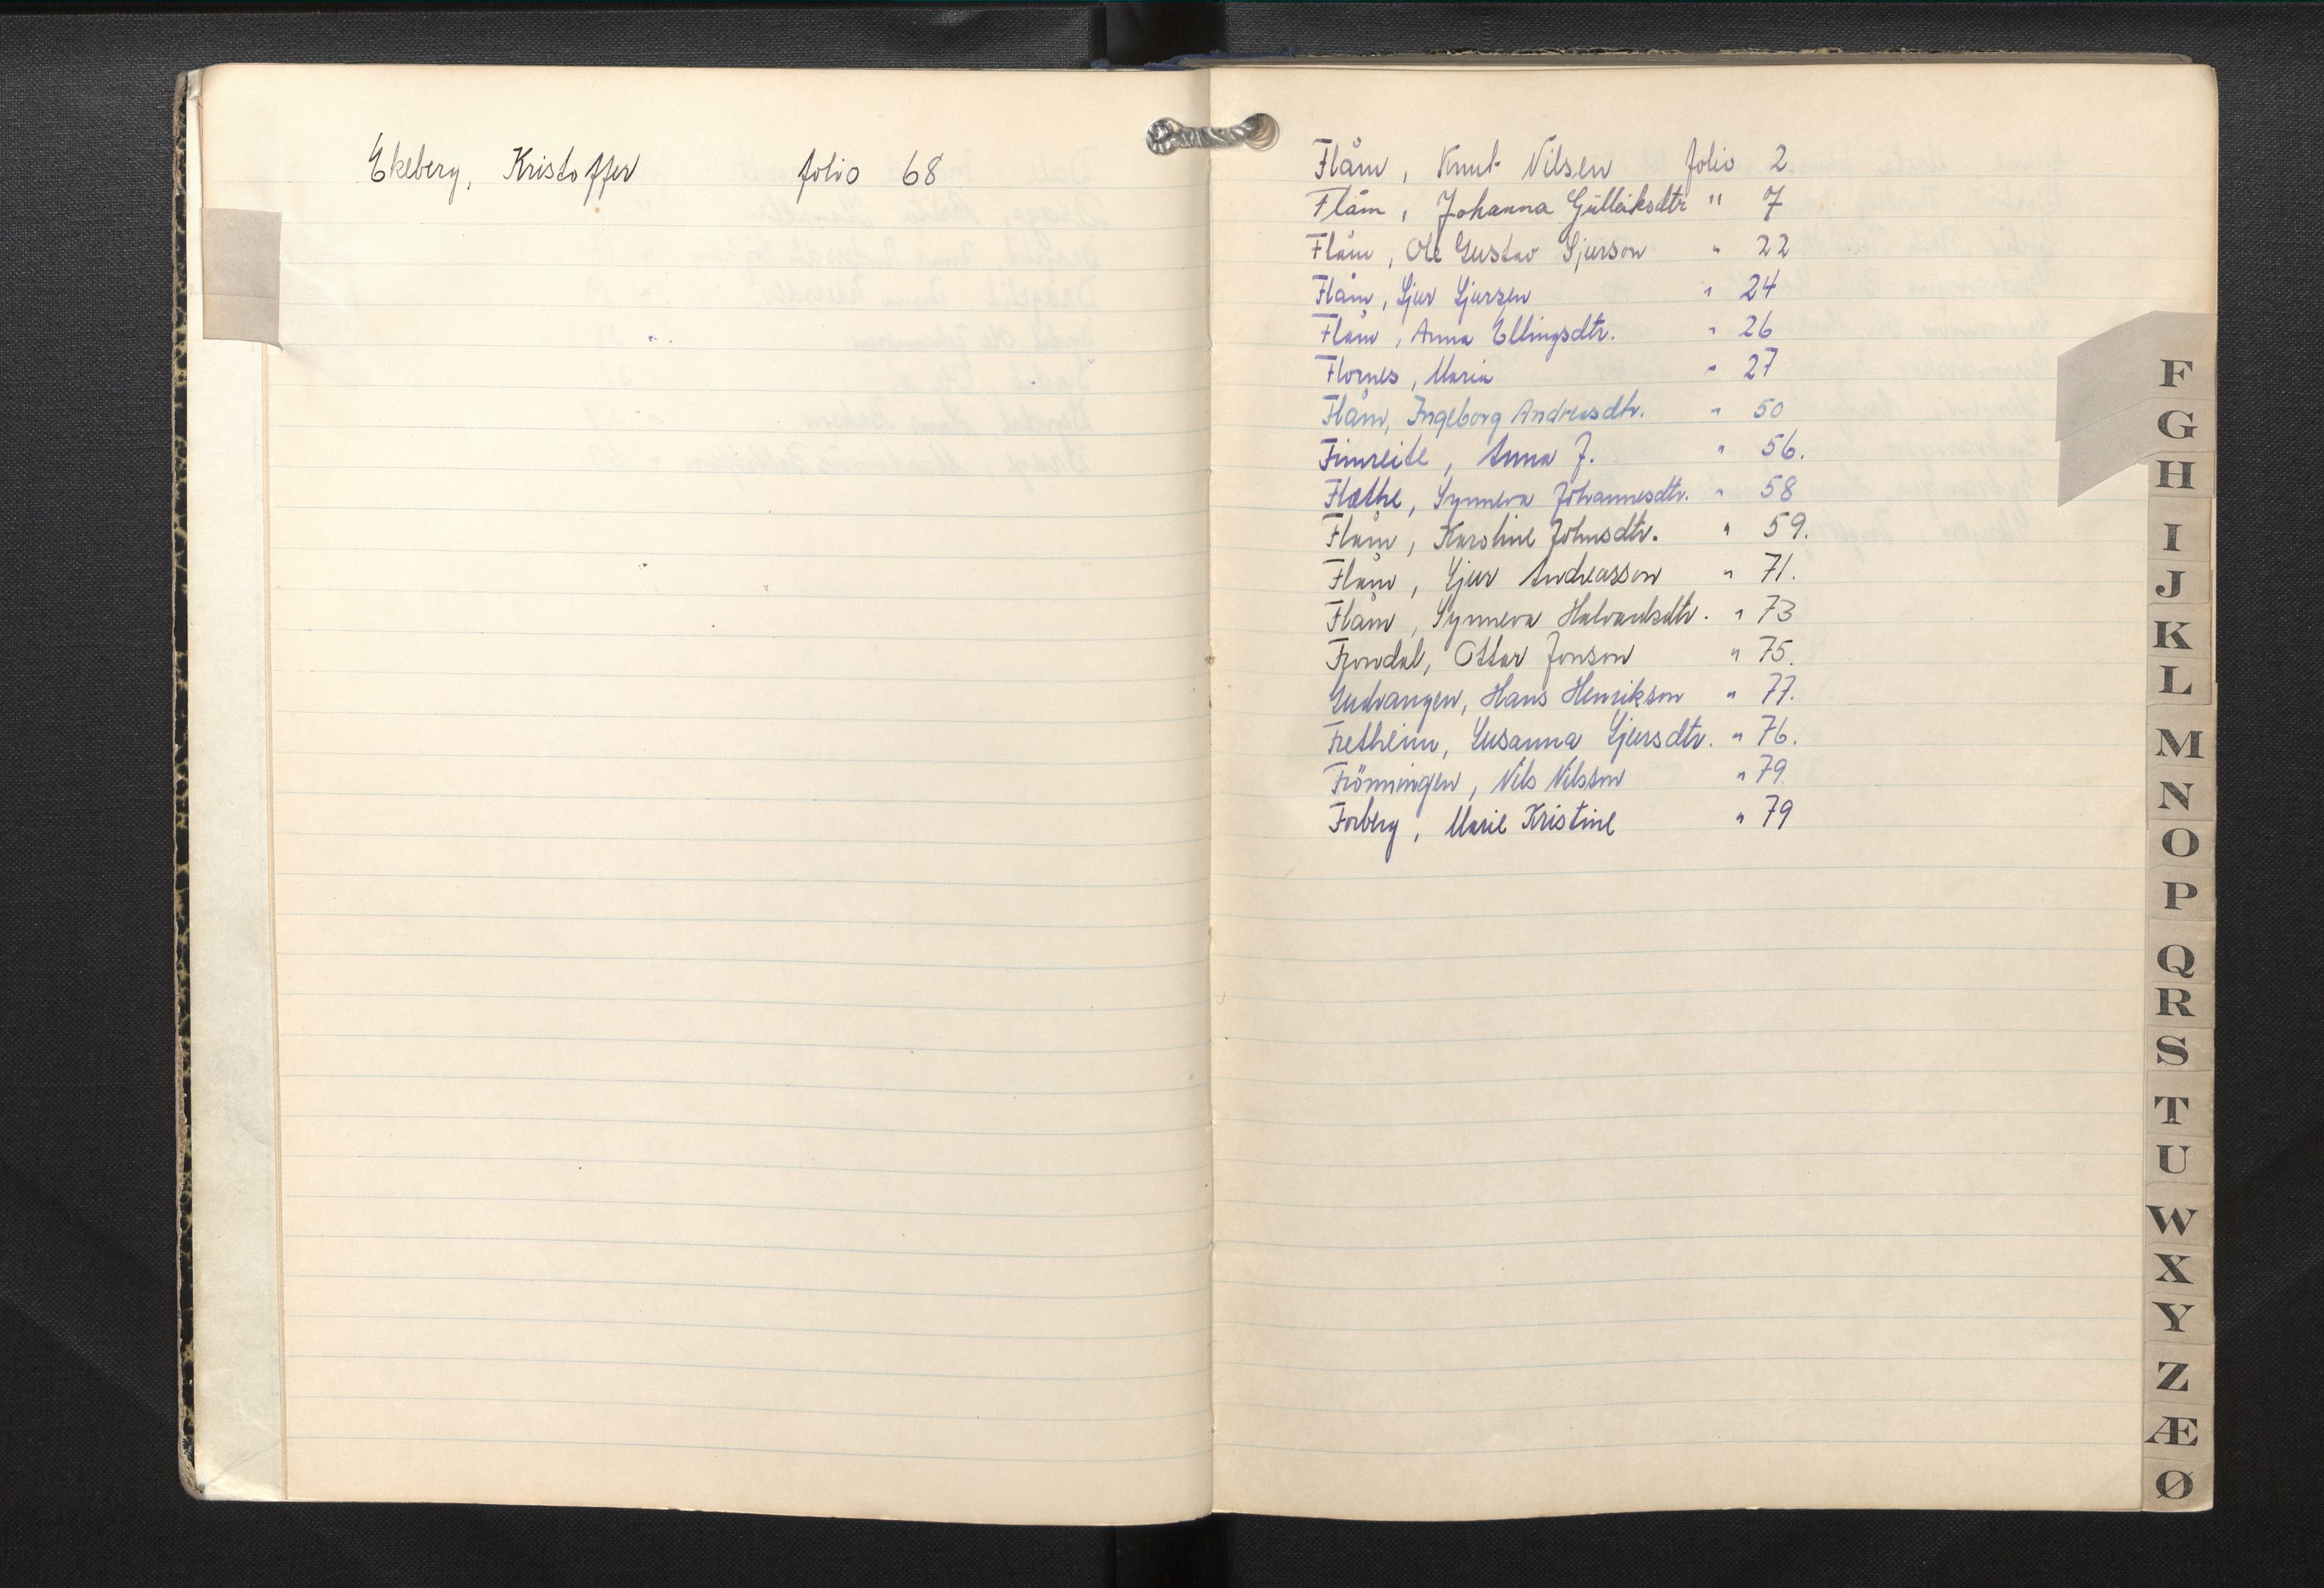 Ekeberg, Kristoffer folio 68
Flåm, Knut Nilsen folio 2
Flåm, Johanna Gulleiksdtr " 7
Flåm, Ole Gustav Sjurson " 22
Flåm, Sjur Sjursen " 24
Flåm, Anna Ellingsdtr. " 26
Flornes, Maria " 27
Flåm, Ingeborg Andreasdtr. " 50
Fimreite, Anna J. " 56.
Flæthe, Synneva Johannesdtr. " 58
Flåm, Karoline Johnsdtr. " 59.
Flåm, Sjur Andreasson " 71.
Flåm, Synneva Halvardsdtr. " 73
Frondal, Ottar Jonson " 75.
Gudvangen, Hans Henrikson " 77.
Fretheim, Susanna Sjursdtr. " 76.
Frönningen, Nils Nilsson " 79.
Forberg, Marie Kristine " 79
F
G
H
I
J
K
L
M
N
O
P
Q
R
S
T
U
W
X
Y
Z
Æ
Ø